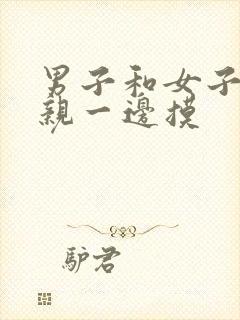 男子和女子
親一邊摸
驴君